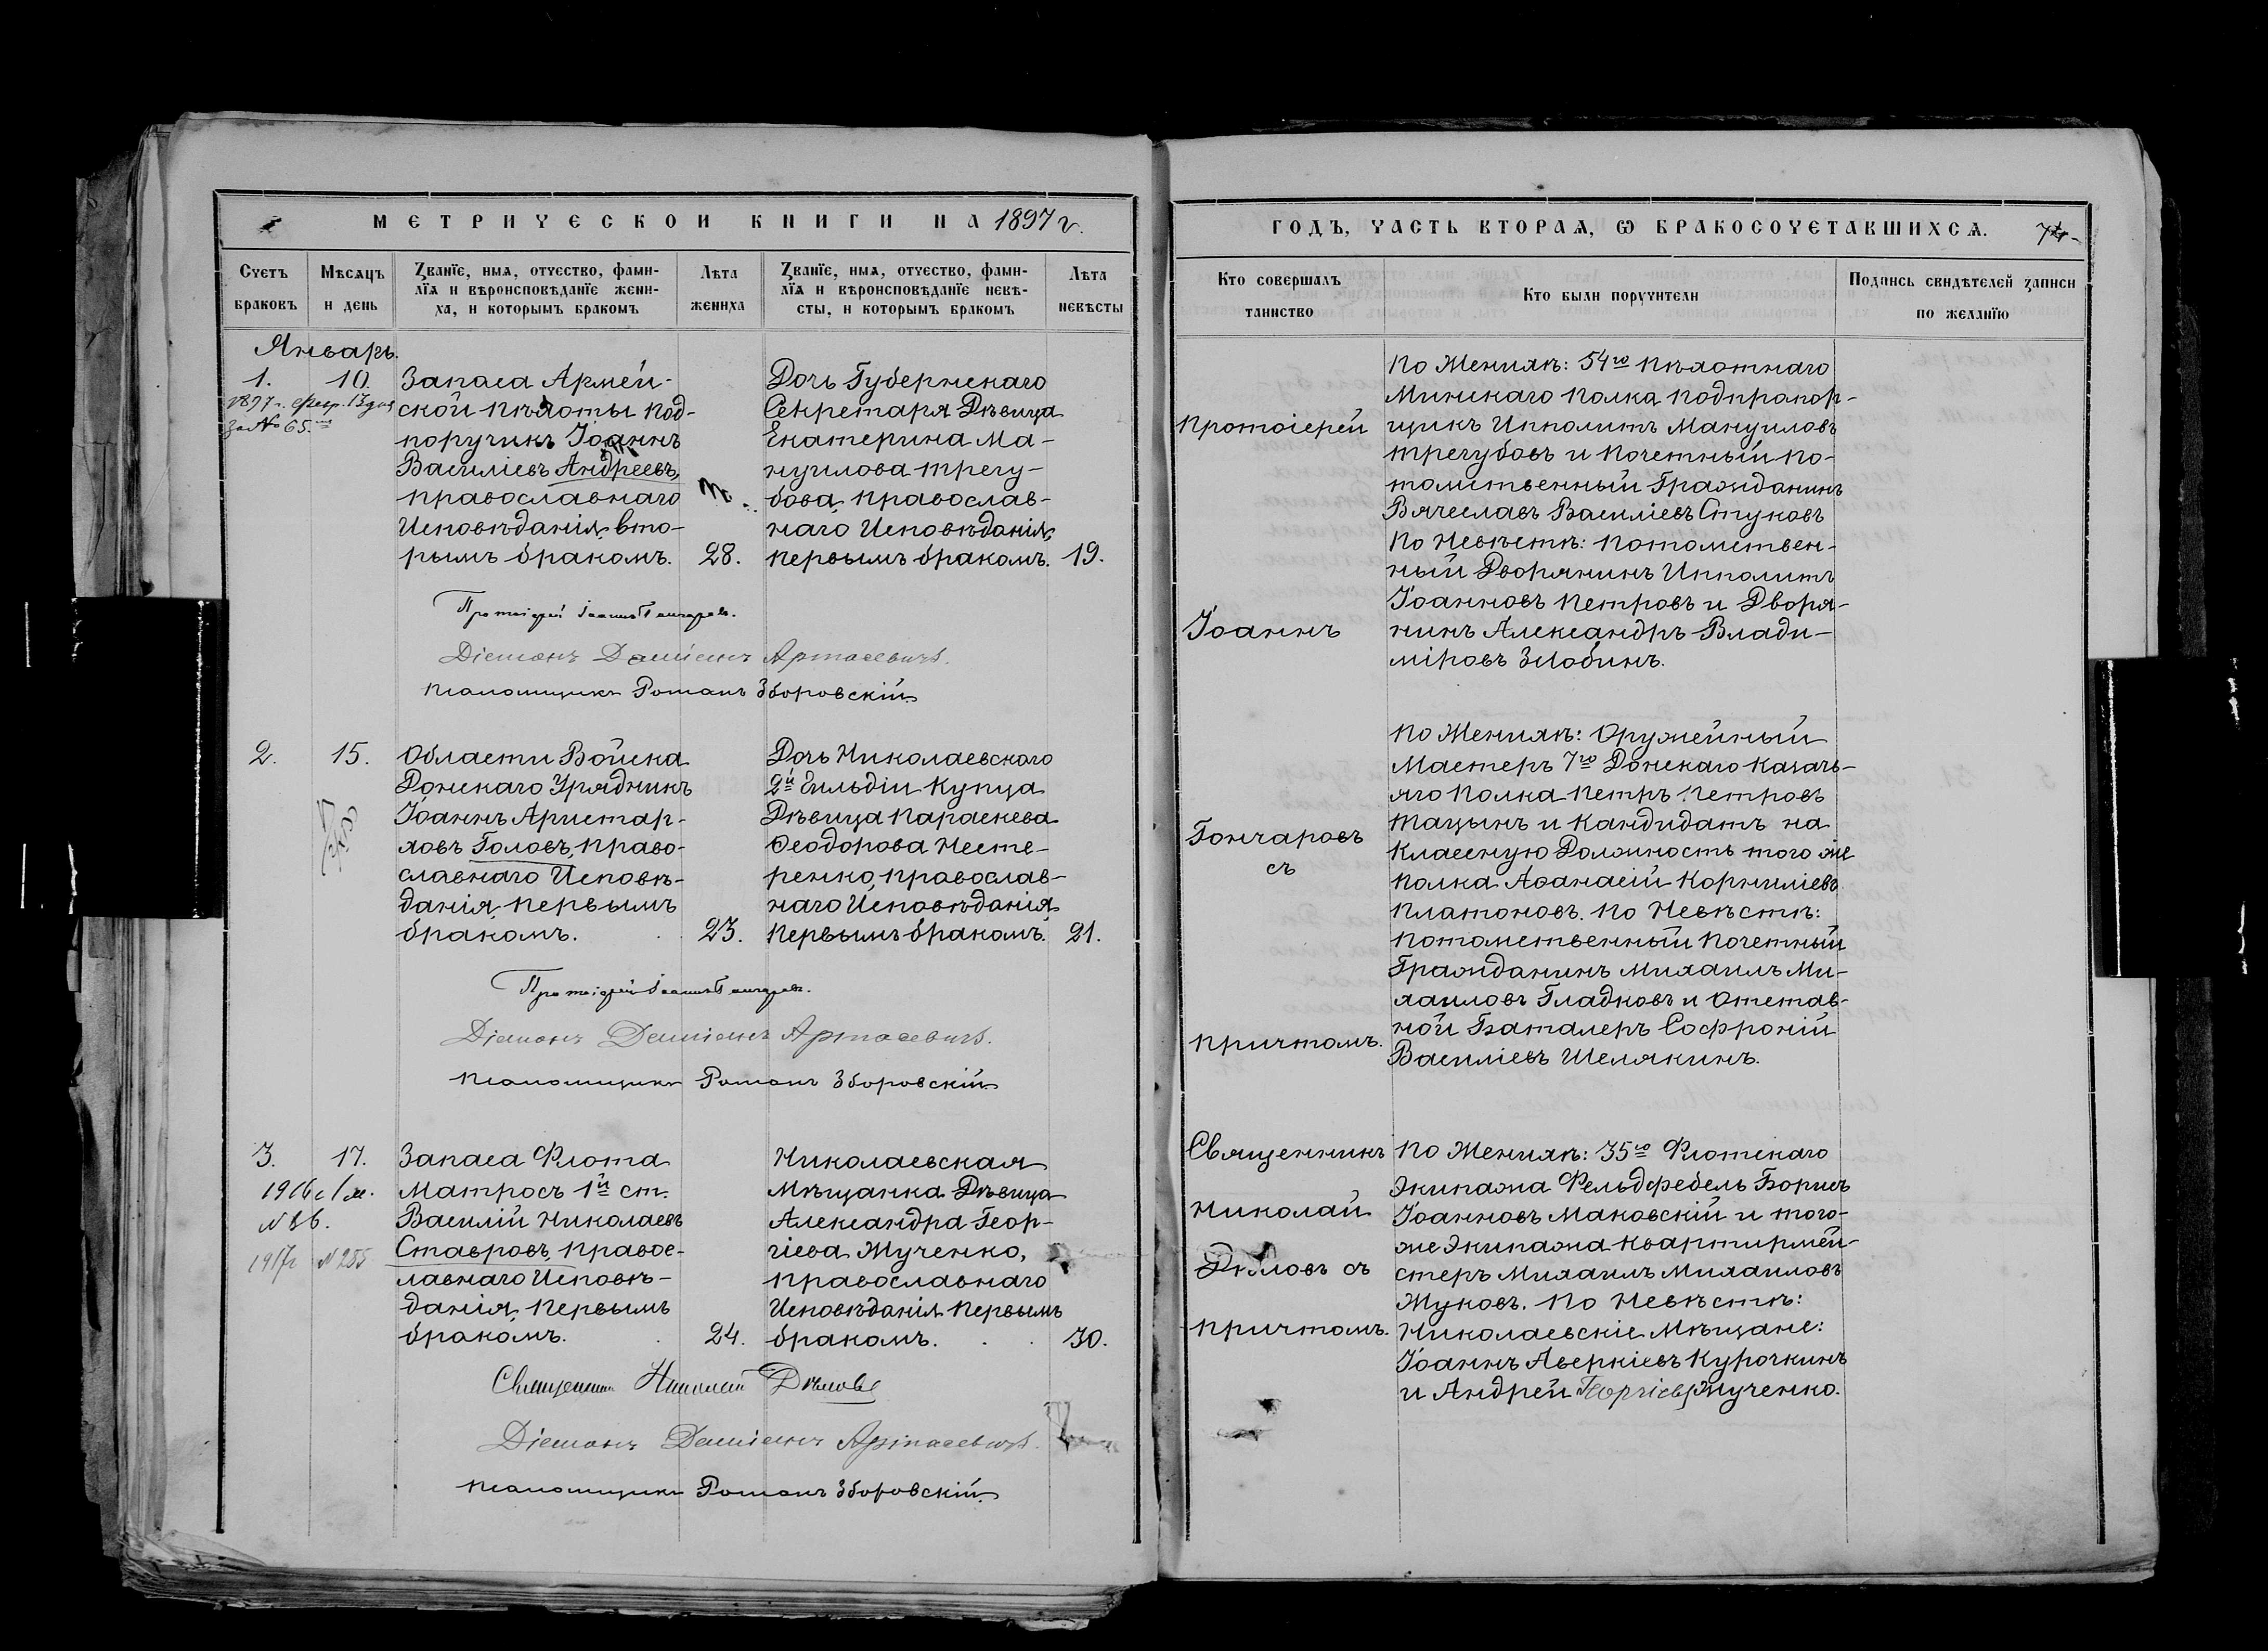 МЕТРИЧЕСКОЙ КНИГИ НА 1897 г.
Счетъ браковъ
Мѣсяцъ и день
Званіе, имя, отчество, фами-
лія и вѣроисповѣданіе жени-
ха, и которымъ бракомъ
Лѣта жениха
Званіе, имя, отчество, фами-
лія и вѣроисповѣданіе невѣ-
сты, и которымъ бракомъ
Лѣта невѣсты
Январь.
1. 10.
1897 г. Февр. 13 дня
за № 65.
Запаса Армей-
ской Пѣхоты Под-
поручикъ Іоаннъ
Василіевъ Андреевъ,
Православнаго
Исповѣданія, вто-
рымъ бракомъ. 28.
Дочь Губернскаго
Секретаря Дѣвица
Екатерина Ма-
нуилова Трегу-
бова, Православ-
наго Исповѣданія,
первымъ бракомъ. 19.
Протоіерей Іоаннъ Гончаровъ.
Діаконъ Даміанъ Артасевичъ.
Псаломщикъ Романъ Зборовскій.
2. 15.
Области Войска
Донскаго Урядникъ
Іоаннъ Аристар-
ховъ Головъ, Право-
славнаго Исповѣ-
данія, первымъ
бракомъ. 23.
Дочь Николаевскаго
2й Гильдіи Купца
Дѣвица Параскева
Ѳеодорова Несте-
ренко, Православ-
наго Исповѣданія,
первымъ бракомъ. 21.
Протоіерей Іоаннъ Гончаровъ.
Діаконъ Даміанъ Артасевичъ.
Псаломщикъ Романъ Зборовскій.
3. 17.
1916 г.
№ 86.
1917 г № 255
Запаса Флота
Матросъ 1й ст.
Василій Николаевъ
Ставровъ, Правос-
лавнаго Исповѣ-
данія, первымъ
бракомъ. 24.
Николаевская
Мѣщанка Дѣвица
Александра Геор-
гіева Жученко,
Православнаго
Исповѣданія первымъ
бракомъ. 30.
Священникъ Николай Дѣловъ
Діаконъ Даміанъ Артасевичъ.
Псаломщикъ Романъ Зборовскій.
ГОДЪ, ЧАСТЬ ВТОРАЯ, Ѡ БРАКОСОЧЕТАВШИХСЯ.
Кто совершалъ таинство
Кто были поручители
Подпись свидѣтелей записи по желанію
Протоіерей
Іоаннъ
Гончаровъ
съ
причтомъ.
По Женихѣ: 54го Пѣхотнаго
Минскаго Полка Подпрапор-
щикъ Ипполитъ Мануиловъ
Трегубовъ и Почетный По-
томственный Гражданинъ
Вячеславъ Василіевъ Стуковъ
По Невѣстѣ: Потомствен-
ный Дворянинъ Ипполитъ
Іоанновъ Петровъ и Дворя-
нинъ Александръ Влади-
міровъ Злобинъ.
По Женихѣ: Оружейный
Мастеръ 7го Донскаго Казачь-
яго Полка Петръ Петровъ
Тацынъ и Кандидатъ на
Классную Должность того же
Полка Аѳанасій Корниліевъ
Платоновъ. По Невѣстѣ:
Потомственный Почетный
Гражданинъ Михаилъ Ми-
хаиловъ Гладковъ и Отстав-
ной Баталеръ Софроній
Василіевъ Шелякинъ.
Священникъ
Николай
Дѣловъ съ
причтомъ.
По Женихѣ: 35го Флотскаго
Экипажа Фельдфебель Борисъ
Іоанновъ Маковскій и того-
же Экипажа Квартирмей-
стеръ Михаилъ Михаиловъ
Жуковъ. По Невѣстѣ:
Николаевскіе Мѣщане:
Іоаннъ Аверкіевъ Курочкинъ
и Андрей Георгіевъ Жученко.